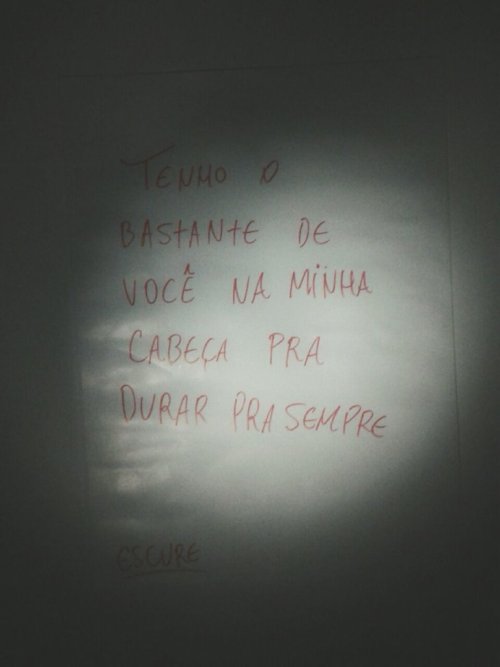 TENHO O
BASTANTE DE
VOCÊ NA MINHA
CABEÇA PRA
DURAR PRA SEMPRE
ESCURE